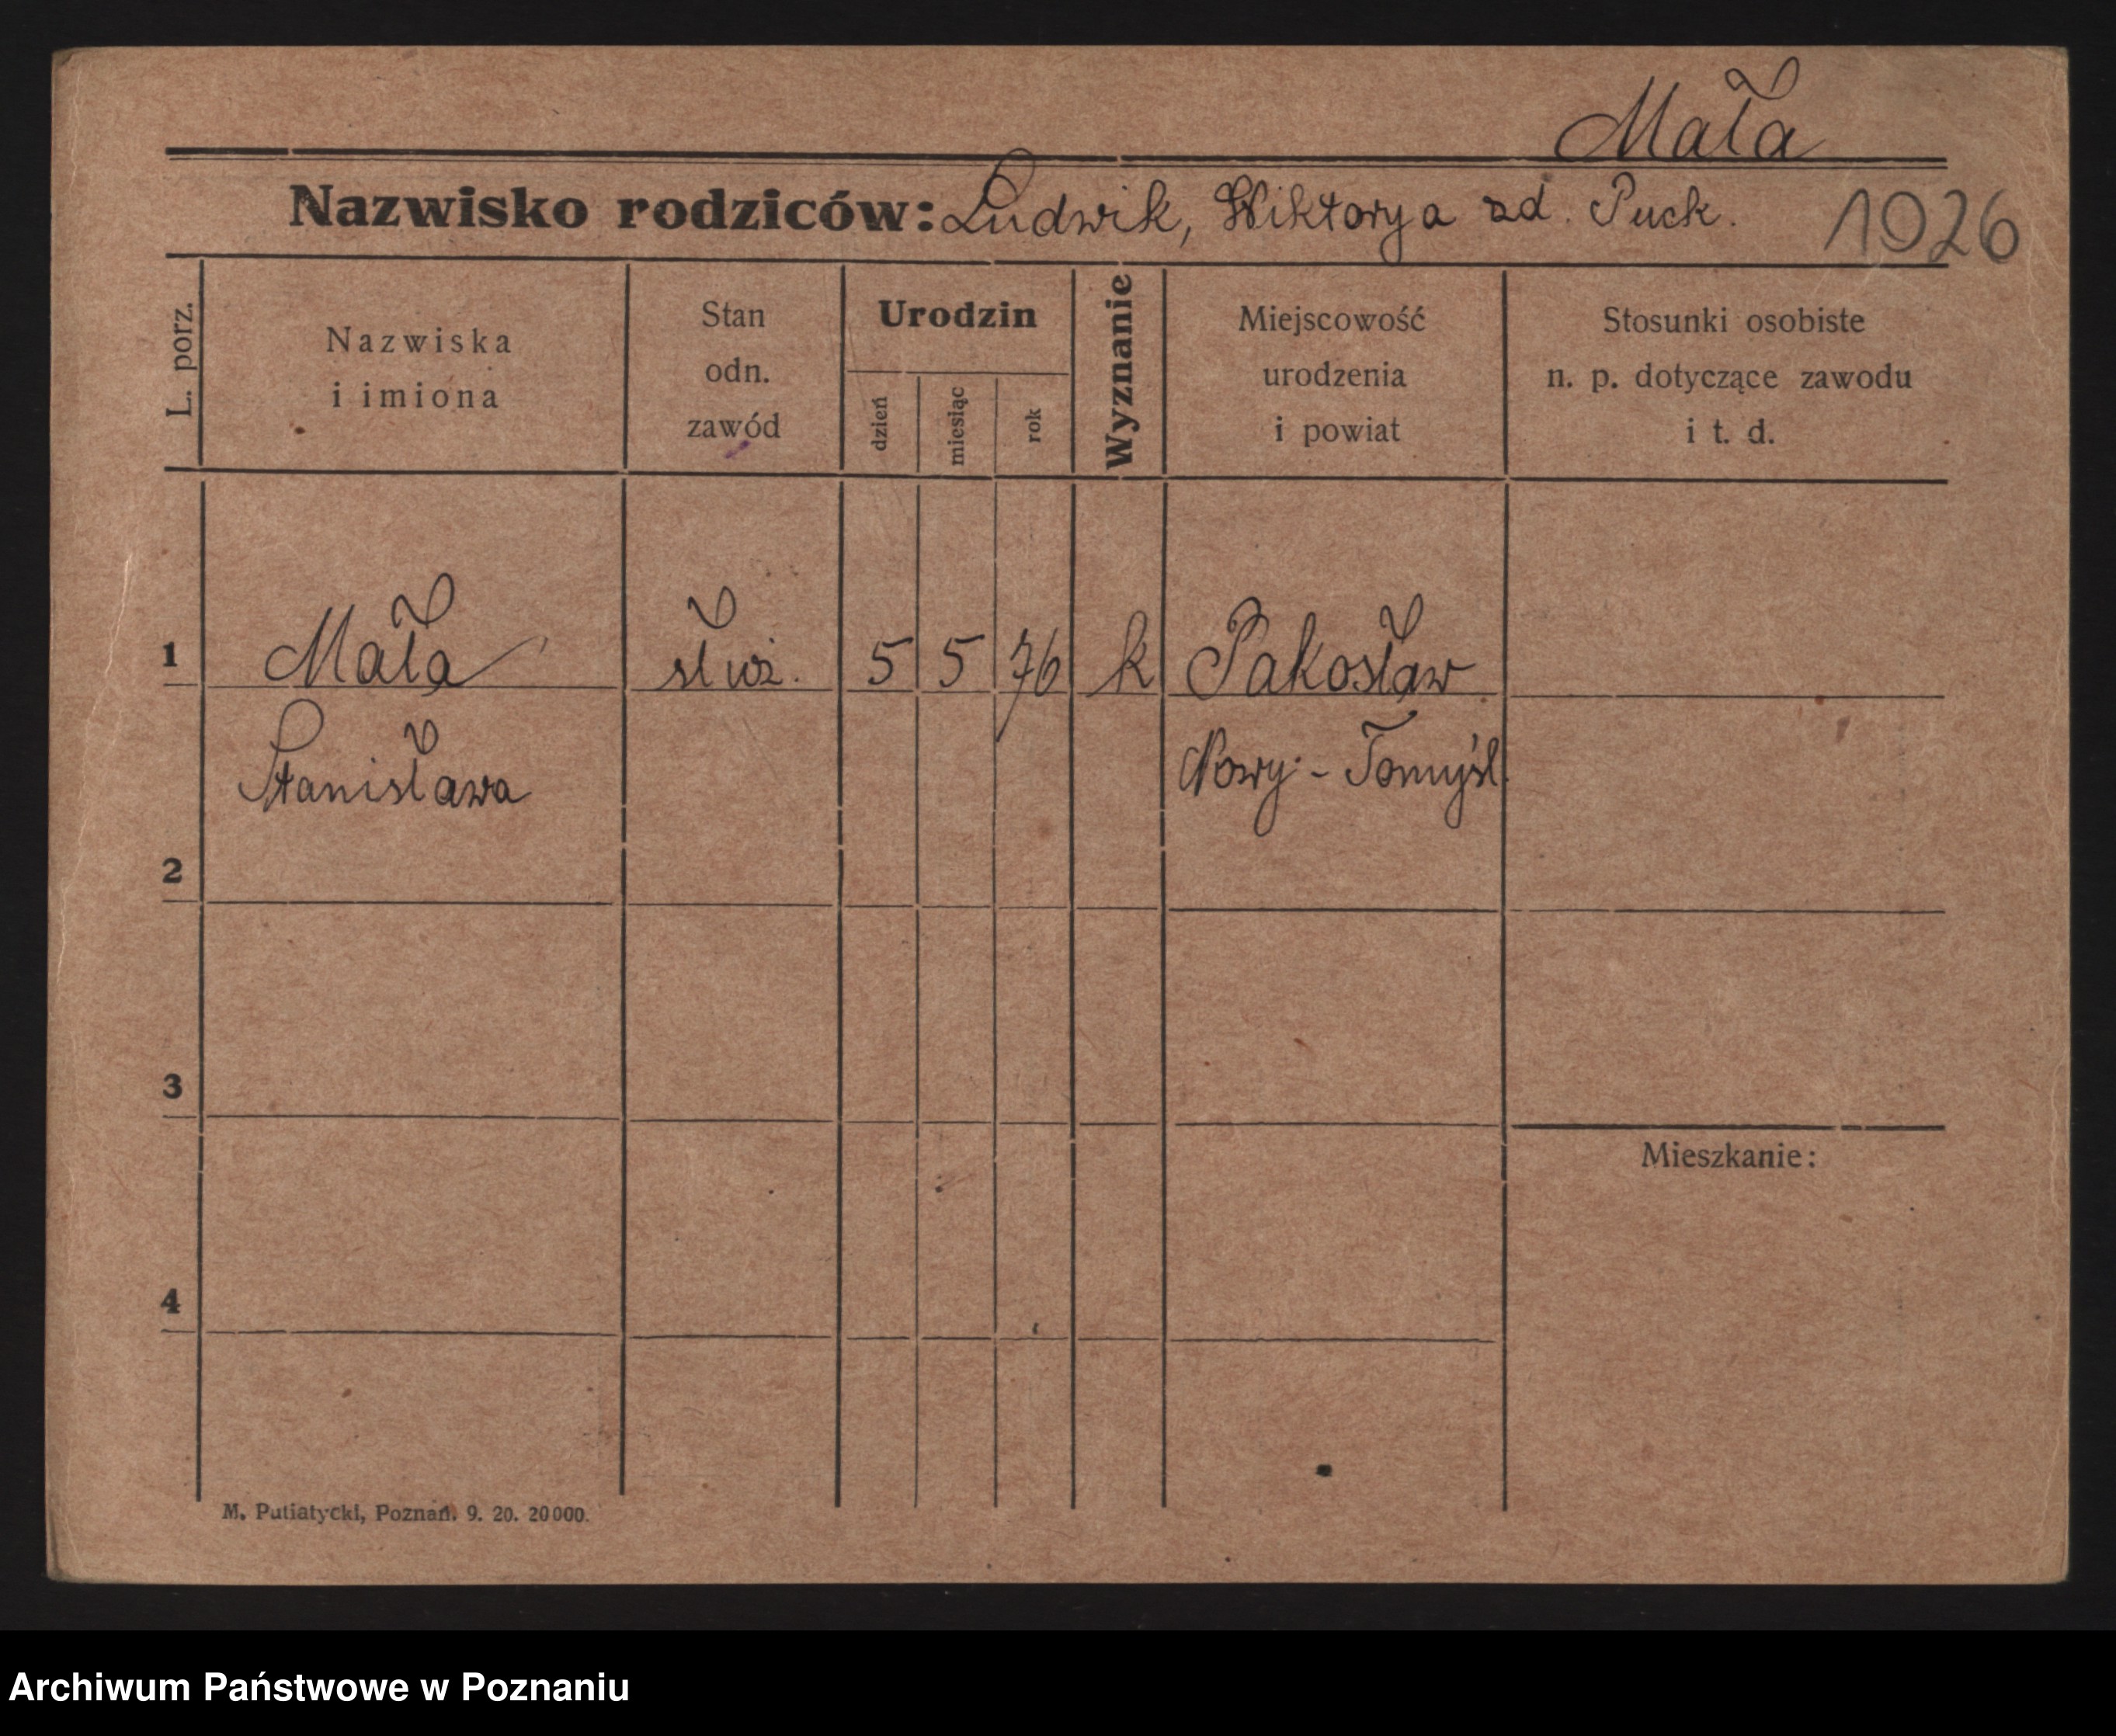 Mała
Nazwisko rodziców: Ludwik, Wiktorya zd. Puck.
1926
L. porz.
Nazwiska
i imiona
Stan
odn.
zawód
Urodzin
dzień
miesiąc
rok
Wyznanie
Miejscowość
urodzenia
i powiat
Stosunki osobiste
n. p. dotyczące zawodu
i t. d.
1 Mała służ. 5 5 76 k Pakosław
Stanisława Nowy-Tomyśl
2
3
Mieszkanie:
4
M. Putiatycki, Poznań. 9. 20. 20000.
Archiwum Państwowe w Poznaniu